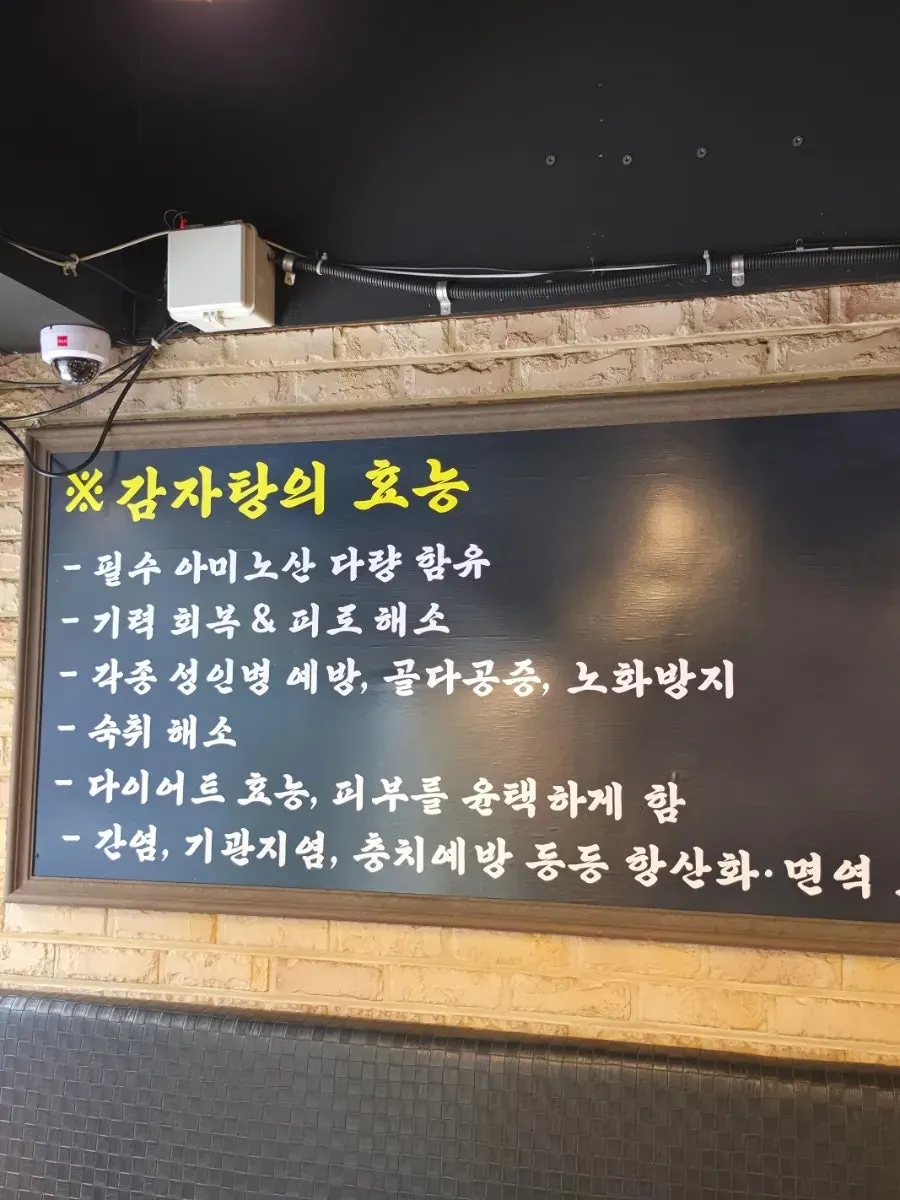 ※감자탕의 효능
- 필수 아미노산 다량 함유
- 기력 회복 & 피로 해소
- 각종 성인병 예방, 골다공증, 노화방지
- 숙취 해소
- 다이어트 효능, 피부를 윤택하게 함
- 간염, 기관지염, 충치예방 등등 항산화·면역